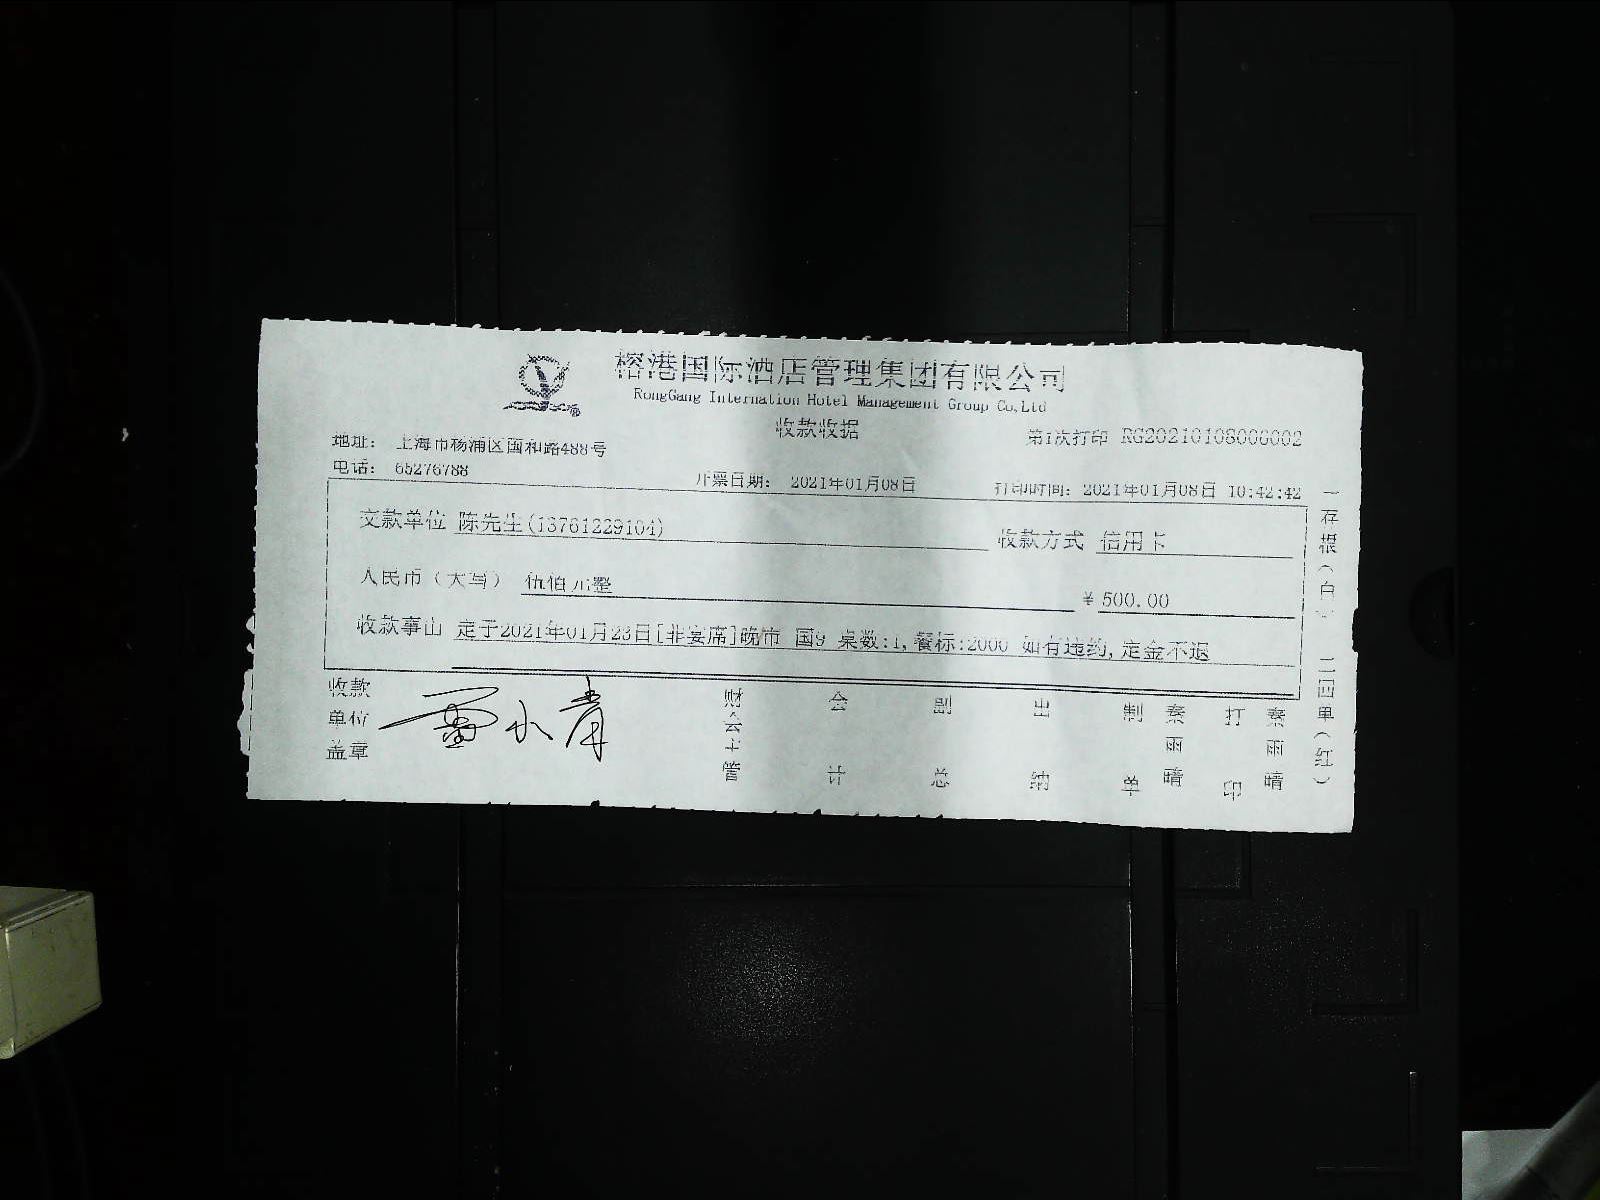 榕港国际酒店管理集团有限公司
RongGang Internation Hotel Management Group Co,Ltd
收款收据
第1次打印 RG20210108006002
地址: 上海市杨浦区国和路488号
电话: 65276788
开票日期: 2021年01月08日
打印时间: 2021年01月08日 10:42:42
交款单位 陈先生(13761229104)
收款方式 信用卡
人民币(大写) 伍佰元整
¥ 500.00
收款事由 定于2021年01月23日[非宴席]晚市 国9 桌数:1,餐标:2000 如有违约,定金不退
收款单位盖章
财会主管
会计
副总
出纳
制单
秦雨晴
打印
秦雨晴
一存根(白) 二回单(红)